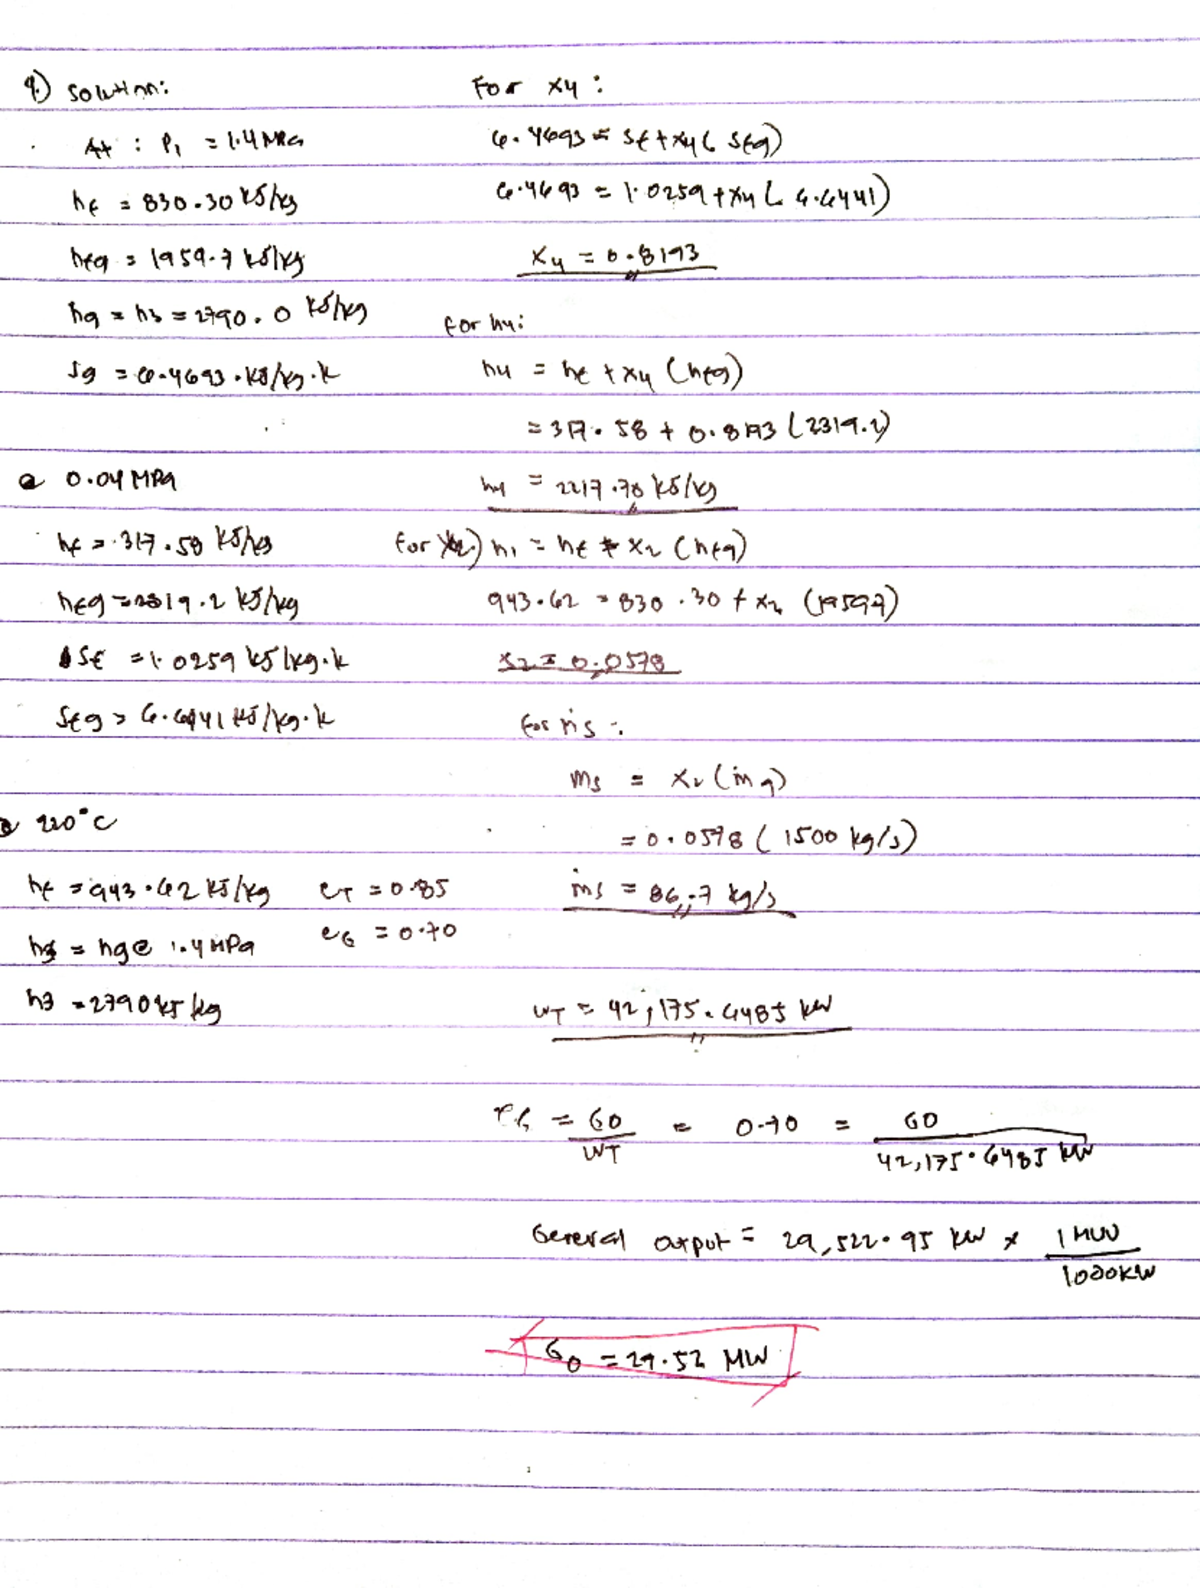 9.) Solution:
At : P1 = 1.4 MPa
hf = 830.30 kJ/kg
hfg = 1959.7 kJ/kg
hg = h3 = 2790.0 kJ/kg
Sg = 6.4693 kJ/kg.k
@ 0.04 MPa
hf = 317.58 kJ/kg
hfg = 2319.2 kJ/kg
Sf = 1.0259 kJ/kg.k
Sfg = 6.6441 kJ/kg.k
@ 220°C
hf = 943.62 kJ/kg
h3 = hg @ 1.4 MPa
h3 = 2790 kJ/kg
eT = 0.85
eG = 0.70
For x4 :
6.4693 = Sf + x4 ( Sfg)
6.4693 = 1.0259 + x4 ( 6.6441)
x4 = 0.8193
for h4:
h4 = hf + x4 (hfg)
= 317.58 + 0.8193 (2319.2)
h4 = 2217.78 kJ/kg
for x2.) h1 = hf + x2 (hfg)
943.62 = 830.30 + x2 (1959.7)
x2 = 0.0578
for ṁs :
ms = x2 (ṁg)
= 0.0578 ( 1500 kg/s)
ṁs = 86.7 kg/s
WT = 42,175.6485 kW
= GO / WT = 0.70 = GO / 42,175.6485 kW
General output = 29,522.95 kW x 1 MW / 1000 kW
GO = 29.52 MW